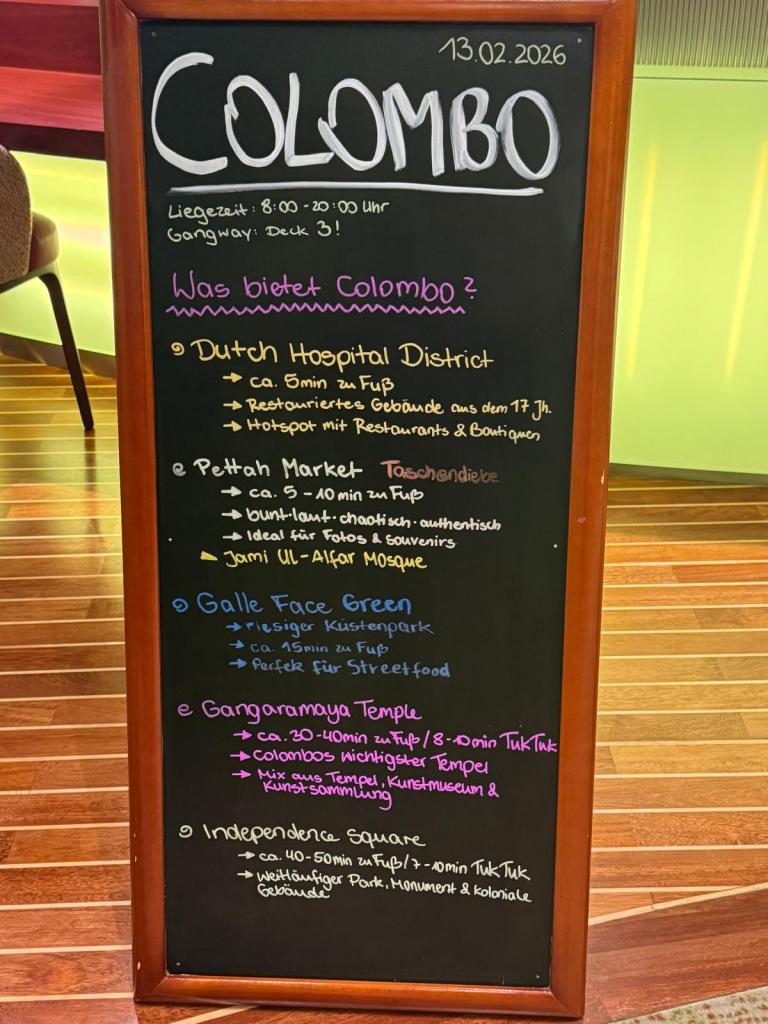 13.02.2026
COLOMBO
Liegezeit: 8:00-20:00 Uhr
Gangway: Deck 3!
Was bietet Colombo?
Dutch Hospital District
→ ca. 5min zu Fuß
→ Restauriertes Gebäude aus dem 17 Jh.
→ Hotspot mit Restaurants & Boutiquen
Pettah Market Taschendiebe
→ ca. 5-10min zu Fuß
→ bunt·laut·chaotisch·authentisch
→ Ideal für Fotos & Souvenirs
Jami Ul-Alfar Mosque
Galle Face Green
→ riesiger Küstenpark
→ ca. 15min zu Fuß
→ Perfek für Streetfood
Gangaramaya Temple
→ ca. 30-40min zu Fuß / 8-10min TukTuk
→ Colombos wichtigster Tempel
→ Mix aus Tempel, Kunstmuseum &
Kunstsammlung
Independence Square
→ ca. 40-50min zu Fuß / 7-10min TukTuk
→ Weitläufiger Park, Monument & koloniale
Gebäude